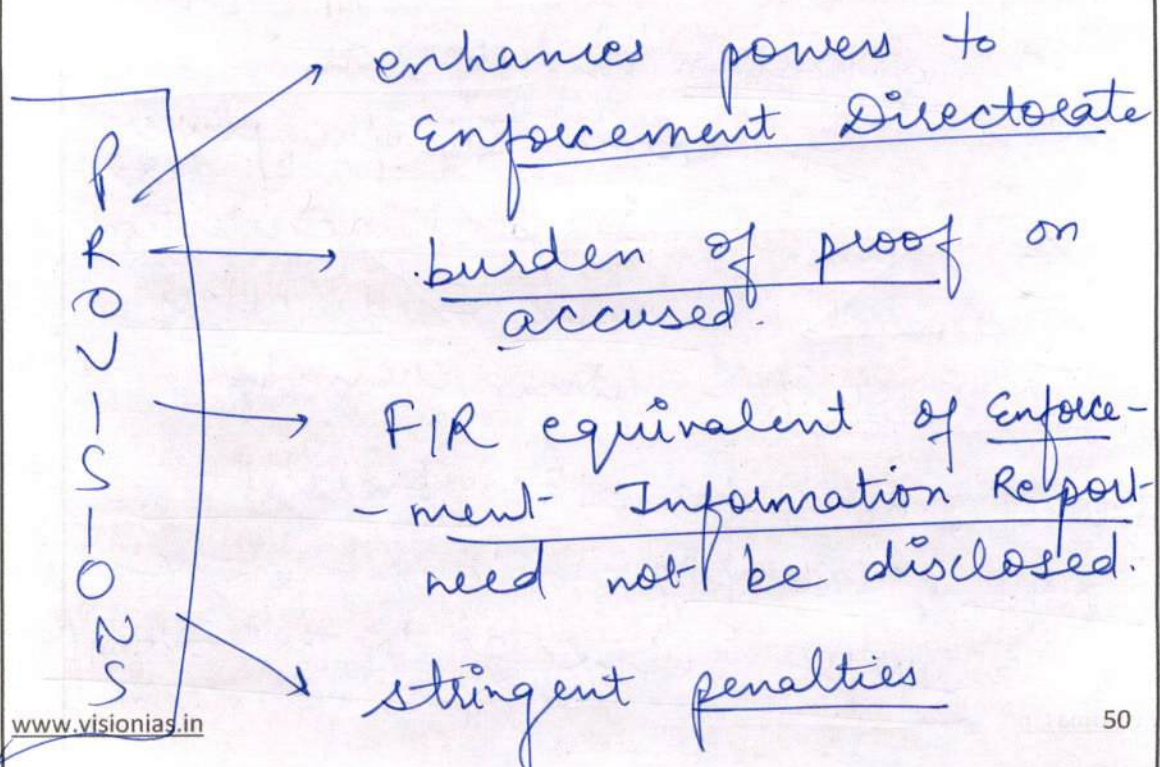 enhances powers to
Enforcement Directorate
PROVISIONS
burden of proof on
accused.
FIR equivalent of Enforce-
-ment Information Report
need not be disclosed.
stringent penalties
www.visionias.in
50